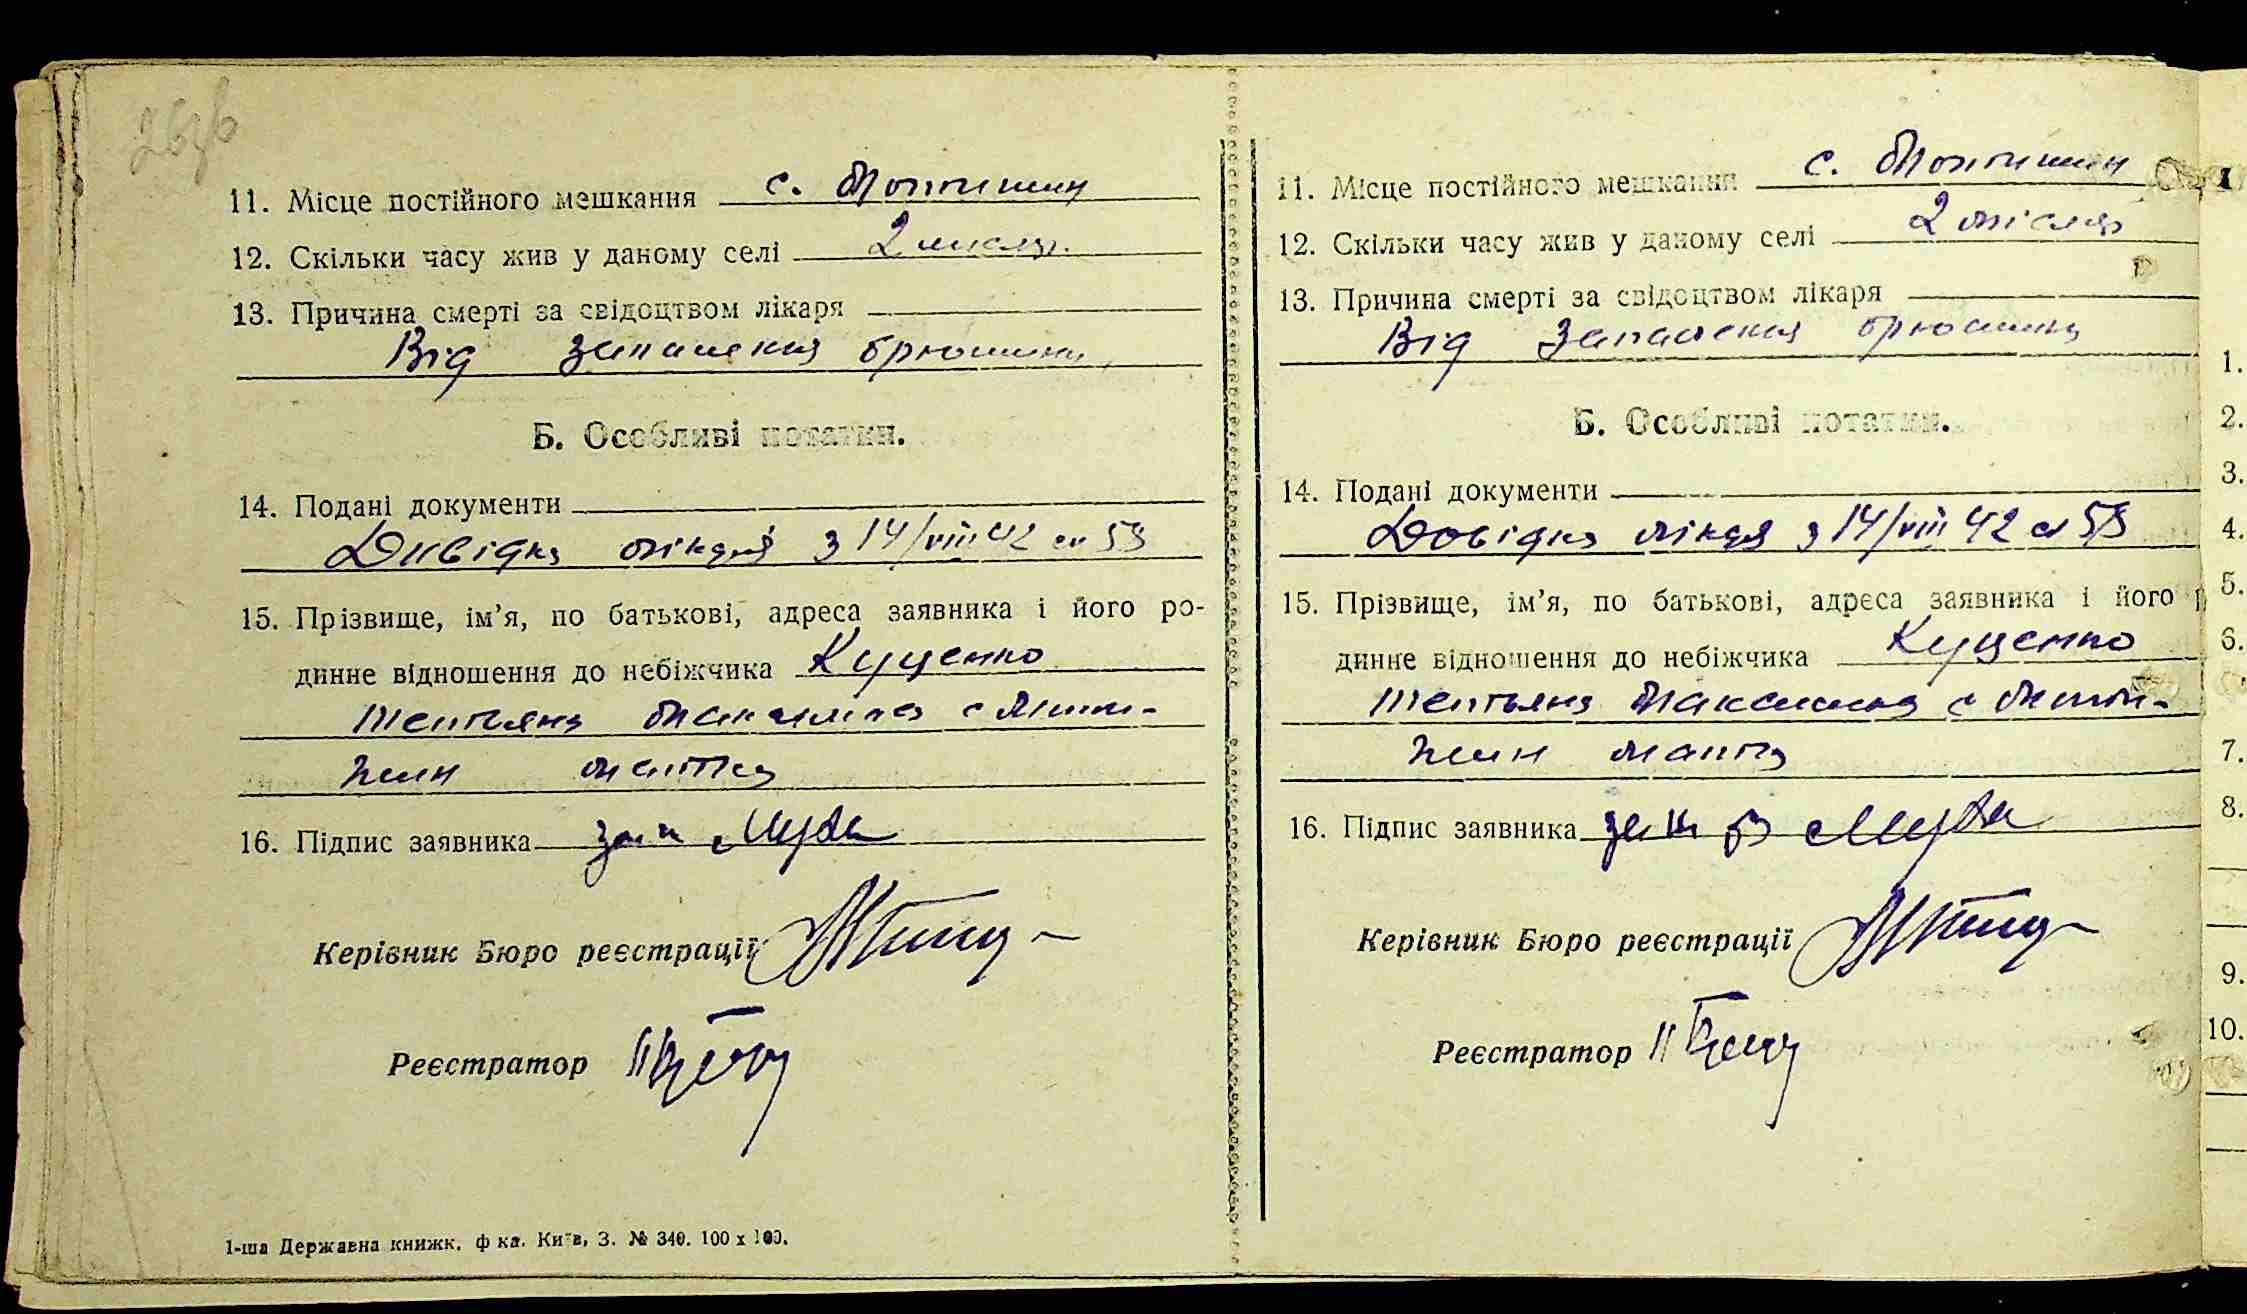 26зв
11. Місце постійного мешкання с. Мотижин
12. Скільки часу жив у даному селі 2 місяц.
13. Причина смерті за свідоцтвом лікаря
Від запалення брюшини
Б. Особливі нотатки.
14. Подані документи
Довідка лікаря з 14/VIII 42 № 53
15. Прізвище, ім’я, по батькові, адреса заявника і його ро-
динне відношення до небіжчика Куценко
Тетьяна Максимовна с Моти-
жин матка
16. Підпис заявника
Керівник Бюро реєстрації
Реєстратор
1-ша Державна книжк. ф ка. Київ, З. № 340. 100 х 100.
11. Місце постійного мешкання с. Мотижин
12. Скільки часу жив у даному селі 2 місяц
13. Причина смерті за свідоцтвом лікаря
Від запалення брюшини
Б. Особливі нотатки.
14. Подані документи
Довідка лікаря з 14/VIII 42 № 53
15. Прізвище, ім’я, по батькові, адреса заявника і його р
динне відношення до небіжчика Куценко
Тетьяна Максимовна с Моти-
жин матка
16. Підпис заявника
Керівник Бюро реєстрації
Реєстратор
1.
2.
3.
4.
5.
6.
7.
8.
9.
10.